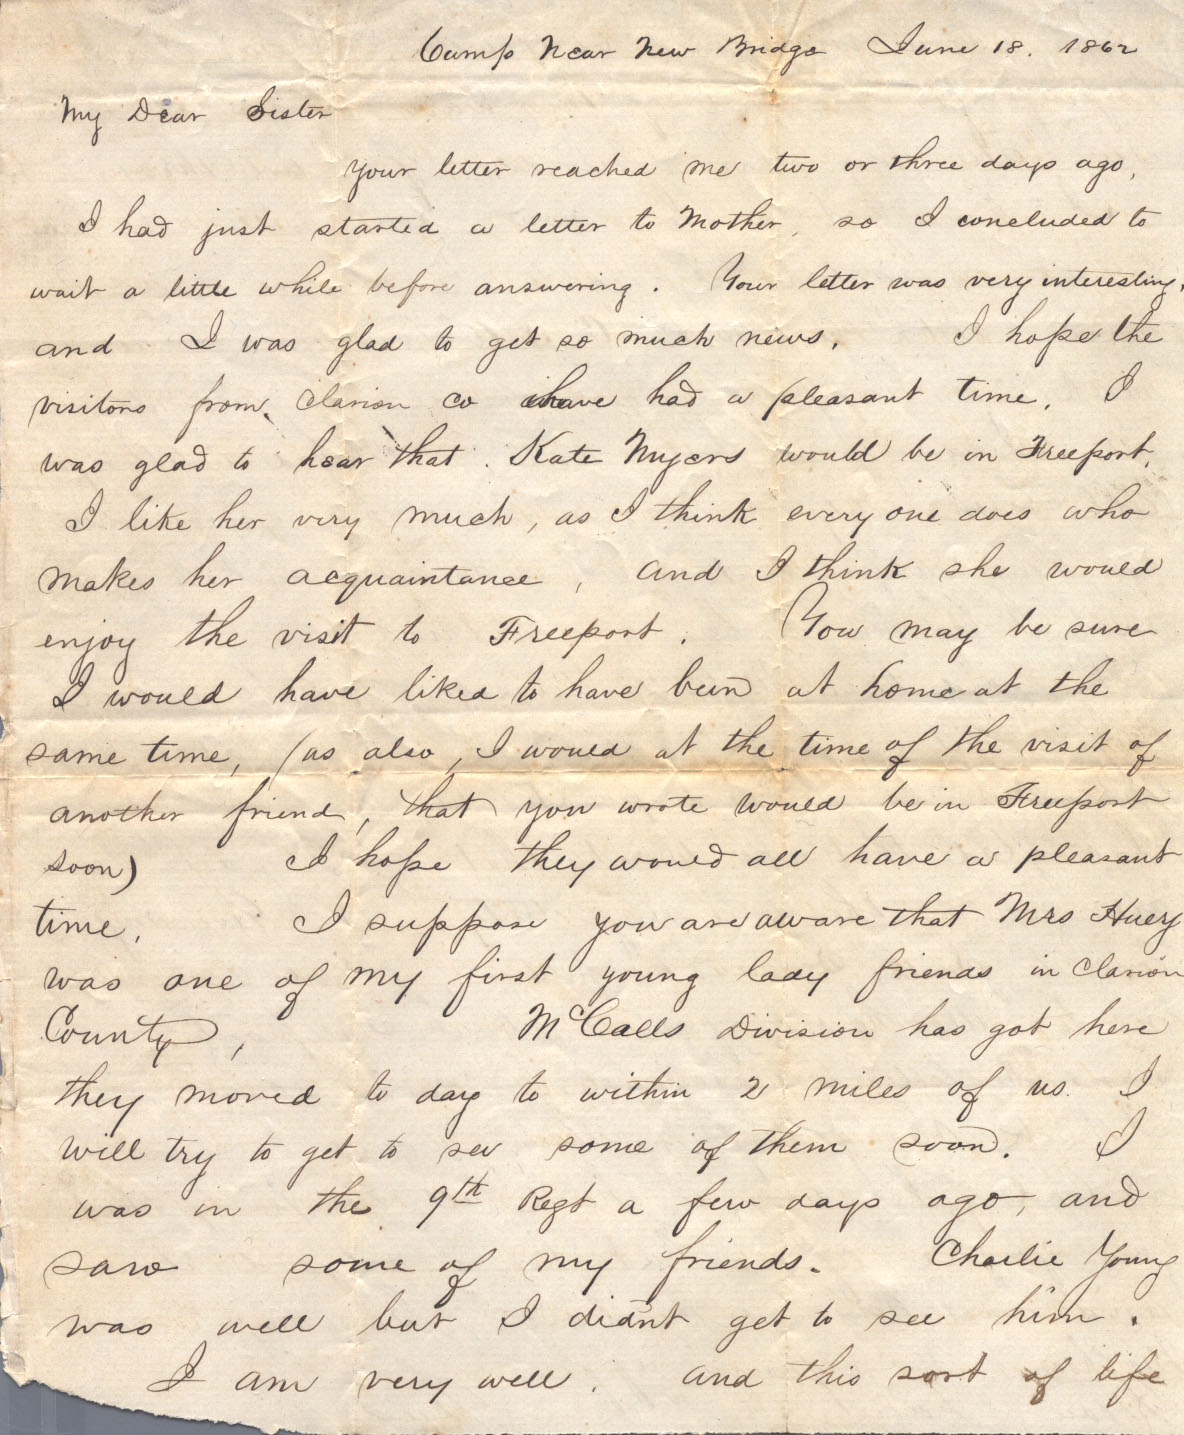 Camp Near New Bridge June 18. 1862
My Dear Sister
Your letter reached me two or three days ago,
I had just started a letter to Mother, so I concluded to
wait a little while before answering. Your letter was very interesting,
and I was glad to get so much news. I hope the
visitors from Clarion co have had a pleasant time. I
was glad to hear that Kate Myers would be in Freeport,
I like her very much, as I think every one does who
makes her acquaintance, and I think she would
enjoy the visit to Freeport. You may be sure
I would have liked to have been at home at the
same time, (as also, I would at the time of the visit of
another friend, that you wrote would be in Freeport
soon) I hope they would all have a pleasant
time. I suppose you are aware that Mrs Huey
was one of my first young lady friends in Clarion
County, McCalls Division has got here
they moved to day to within 2 miles of us. I
will try to get to see some of them soon. I
was in the 9th Regt a few days ago, and
saw some of my friends. Charlie Young
was well but I didn't get to see him.
I am very well. and this sort of life